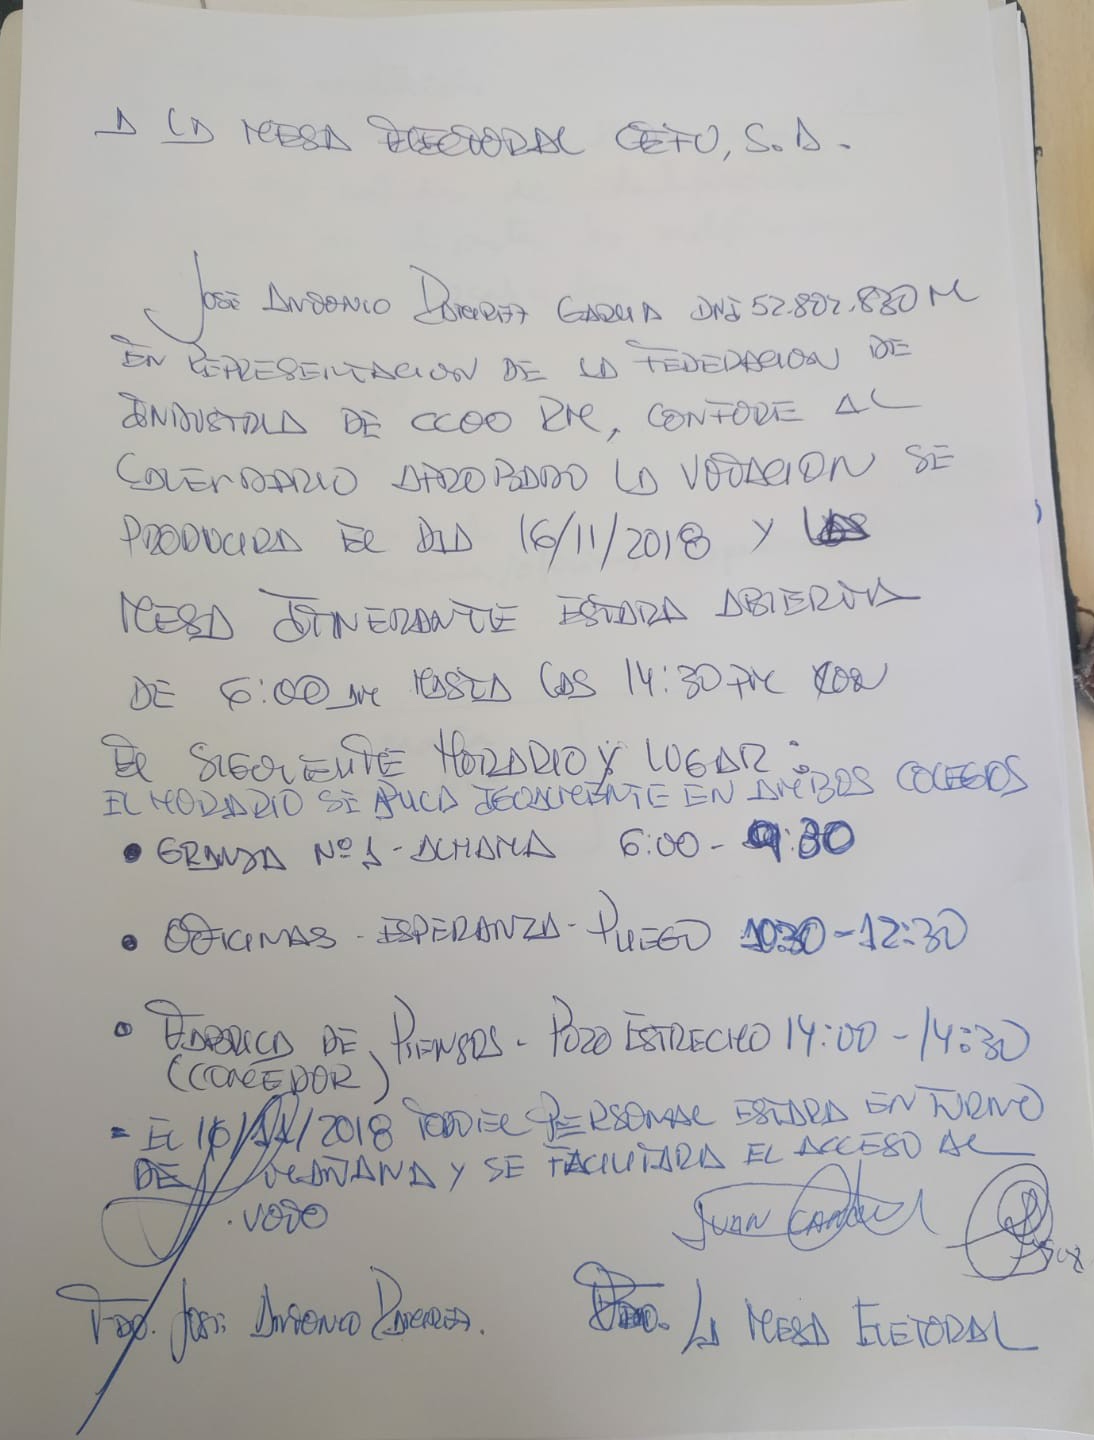 A LA MESA ELECTORAL CEFU, S.A.
JOSE ANTONIO RAMIREZ GARCIA DNI 52.802.830 M
EN REPRESENTACION DE LA FEDERACION DE
INDUSTRIA DE CCOO RM, CONFORE AL
CALENDARIO APROBADO LA VOTACION SE
PRODUCIRA EL DIA 16/11/2018 Y
MESA ITINERANTE ESTARA ABIERTA
DE 6:00 AM HASTA LAS 14:30 PM CON
EL SIGUIENTE HORARIO Y LUGAR:
EL HORARIO SE APLICA IGUALMENTE EN AMBOS COLEGIOS
• GRANJA Nº 1 - ALHAMA 6:00 - 9:30
• OFICINAS - ESPERANZA - PLIEGO 10:30 - 12:30
• FABRICA DE PIENSOS - POZO ESTRECHO 14:00 - 14:30
(COMEDOR)
- EL 16/11/2018 TODO EL PERSONAL ESTARA EN TURNO
DE MAÑANA Y SE FACILITARA EL ACCESO AL
VOTO
JUAN
FDO. JOSE ANTONIO RAMIREZ.
FDO. LA MESA ELETORAL